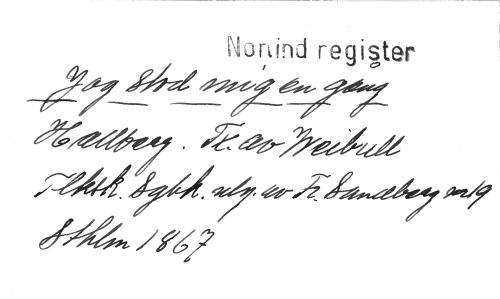 Nomind register
Jag stod mig en gång
Hallberg. Tr. av Weibull
Flksk. Sgbk. utg. av Fr. Sandberg nr 19
Sthlm 1867